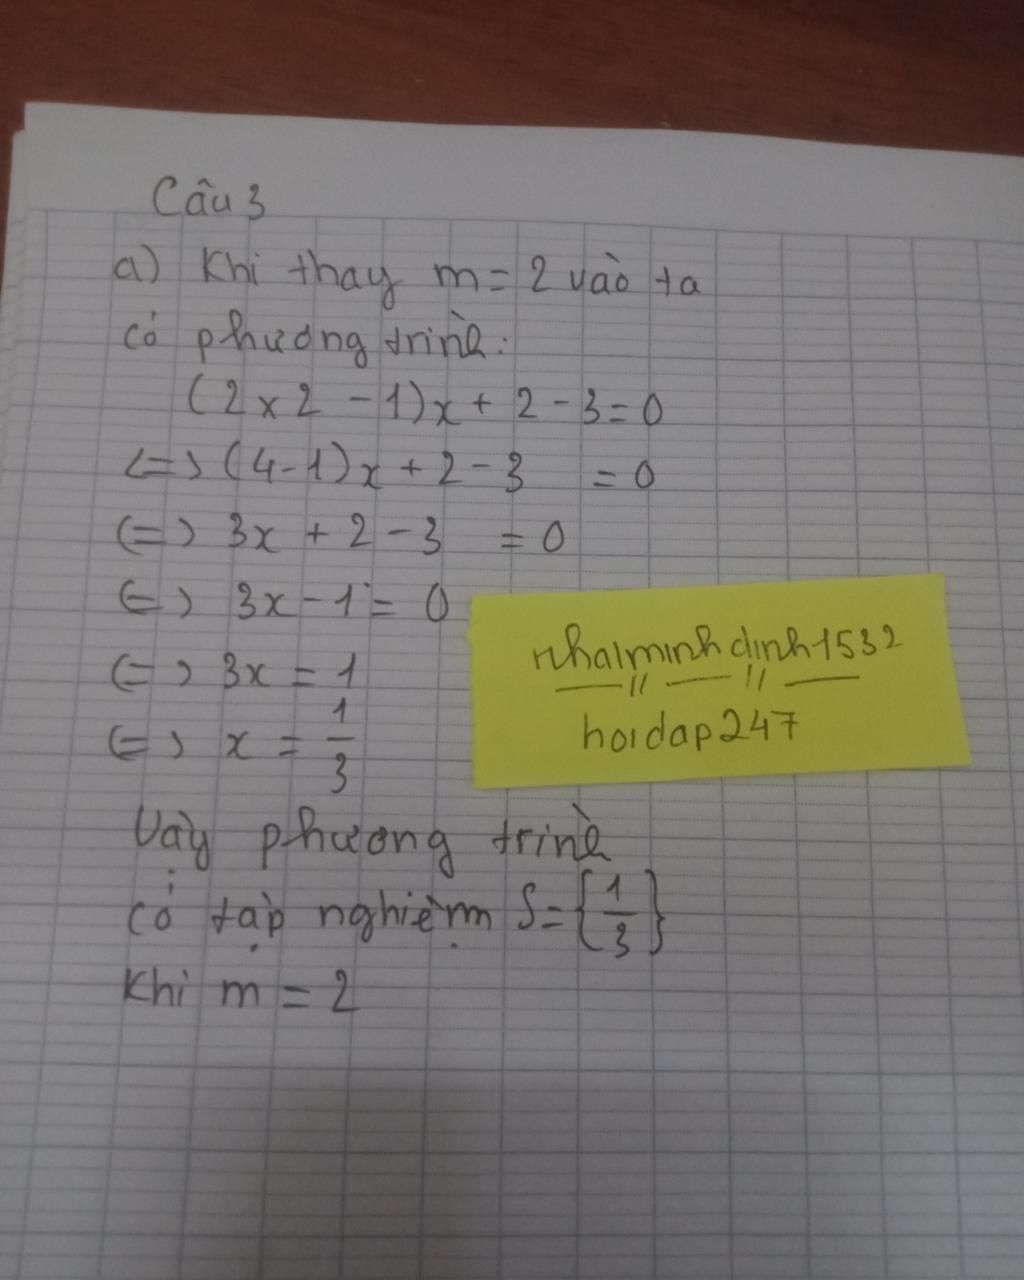 Câu 3
a) Khi thay m = 2 vào ta
có phương trình:
(2 x 2 - 1)x + 2 - 3 = 0
<=> (4 - 1)x + 2 - 3 = 0
<=> 3x + 2 - 3 = 0
<=> 3x - 1 = 0
<=> 3x = 1
<=> x = 1/3
Vậy phương trình
có tập nghiệm S = {1/3}
Khi m = 2
nhalminhdinh1532
hoidap247